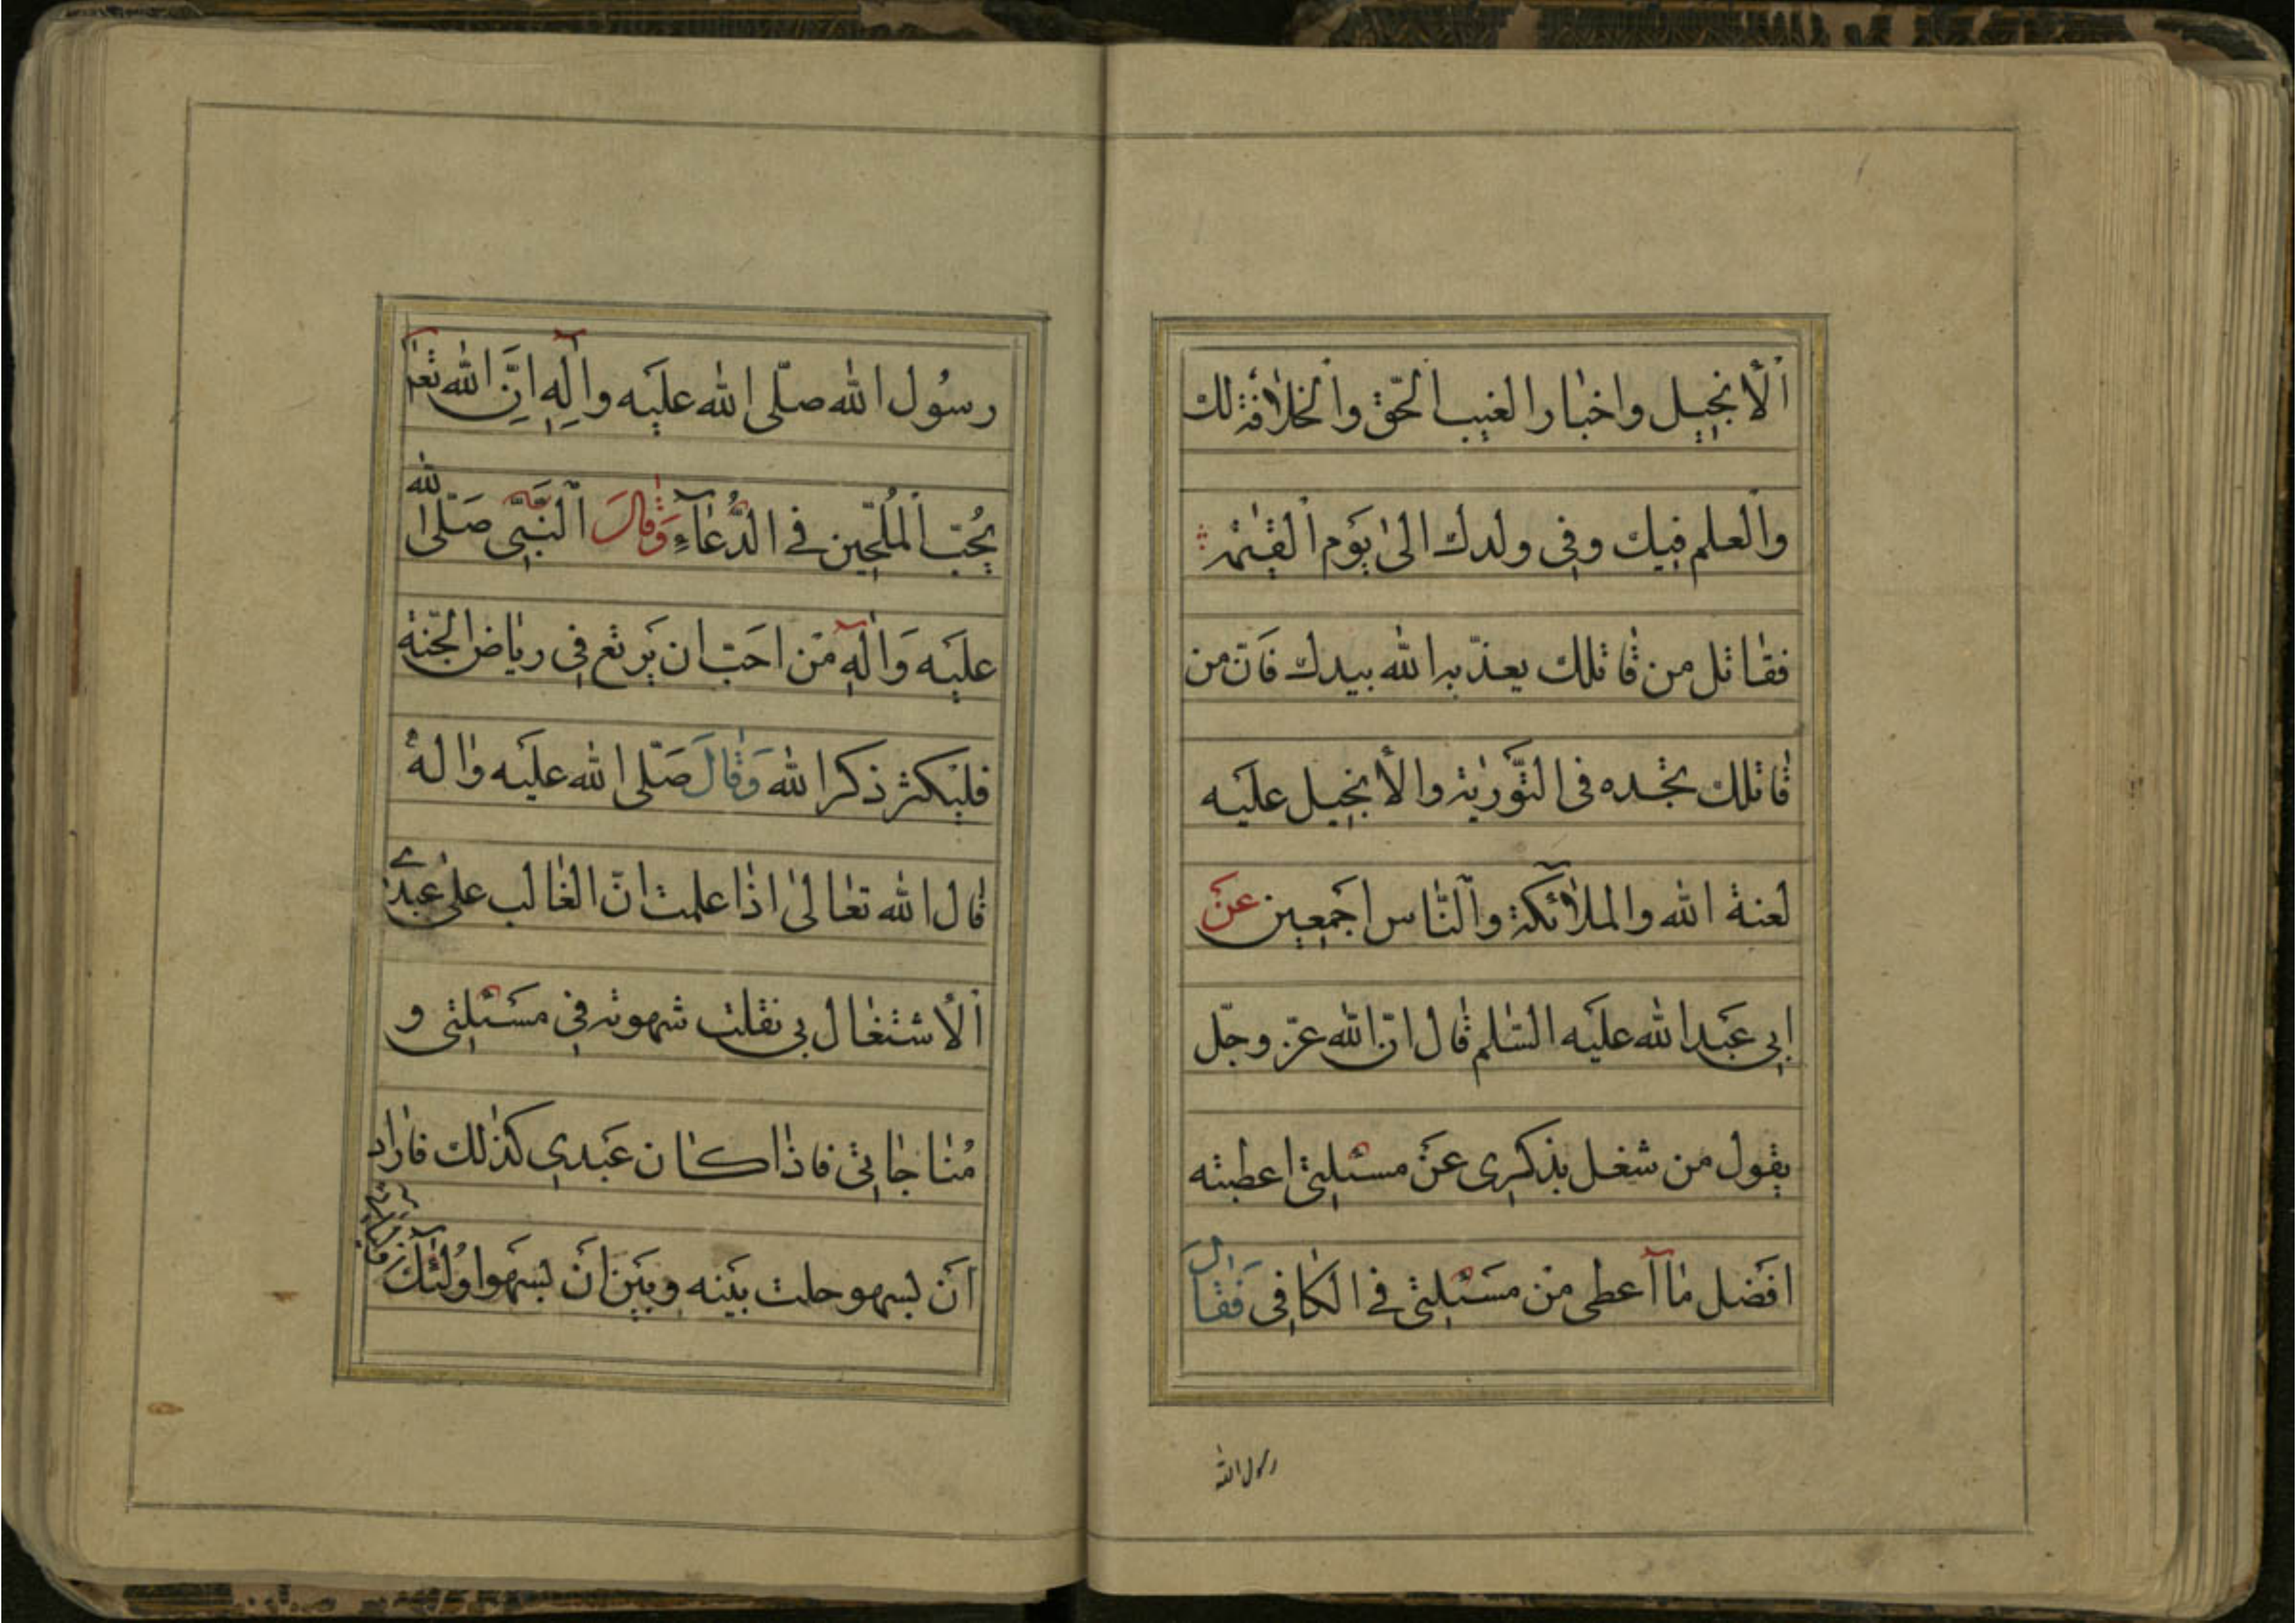 اَلْأنجيل واخبٰار الغيب الحّق والخلٰافة لك
والعلم فيك وفى ولدك الىٰ يَوم القيٰمة
فقٰاتل من قٰاتلك يعذّبه الله بيدك فَانّ من
قٰاتلك تجده فى التَّوريٰة والأنجيل عليَه
لعنة الله والملآئكة والنّاس اجمَعين عَنْ
ابي عَبد الله عليَه السّٰلم قٰال انّ الله عزّ وجلّ
يقول من شغل بذكرى عَنْ مسئلتي اعطيته
افضَل مٰا آعطى مَنْ مسَئلتي فى الكٰافى فَقٰال
رسول الله
رسُول الله صلّى الله عليَه واٰلِهِ اِنَّ الله تعٰ
يُحبّ المُلحّين فى الدُّعٰآءِ وَقٰالَ النَّبيّ صَلّى الله
عليَه وَاٰلهِ مَن احَبّ ان يَرتع فى ريٰاض الجّنة
فليْكثر ذكر الله وَقٰالَ صَلّى الله عليَه وٰاله
قٰال الله تعٰالىٰ اذٰا علمت انّ الغٰالب علىٰ عبدي
اَلْاشتغٰال بي نقلت شهوته في مسَئلتي و
مُنٰاجٰاتي فاذٰا كان عَبدي كذٰلك فارٰاد
اَنْ يسهو حلت بيَنه وبيَن اَنْ يسَهو اوُلٰئك